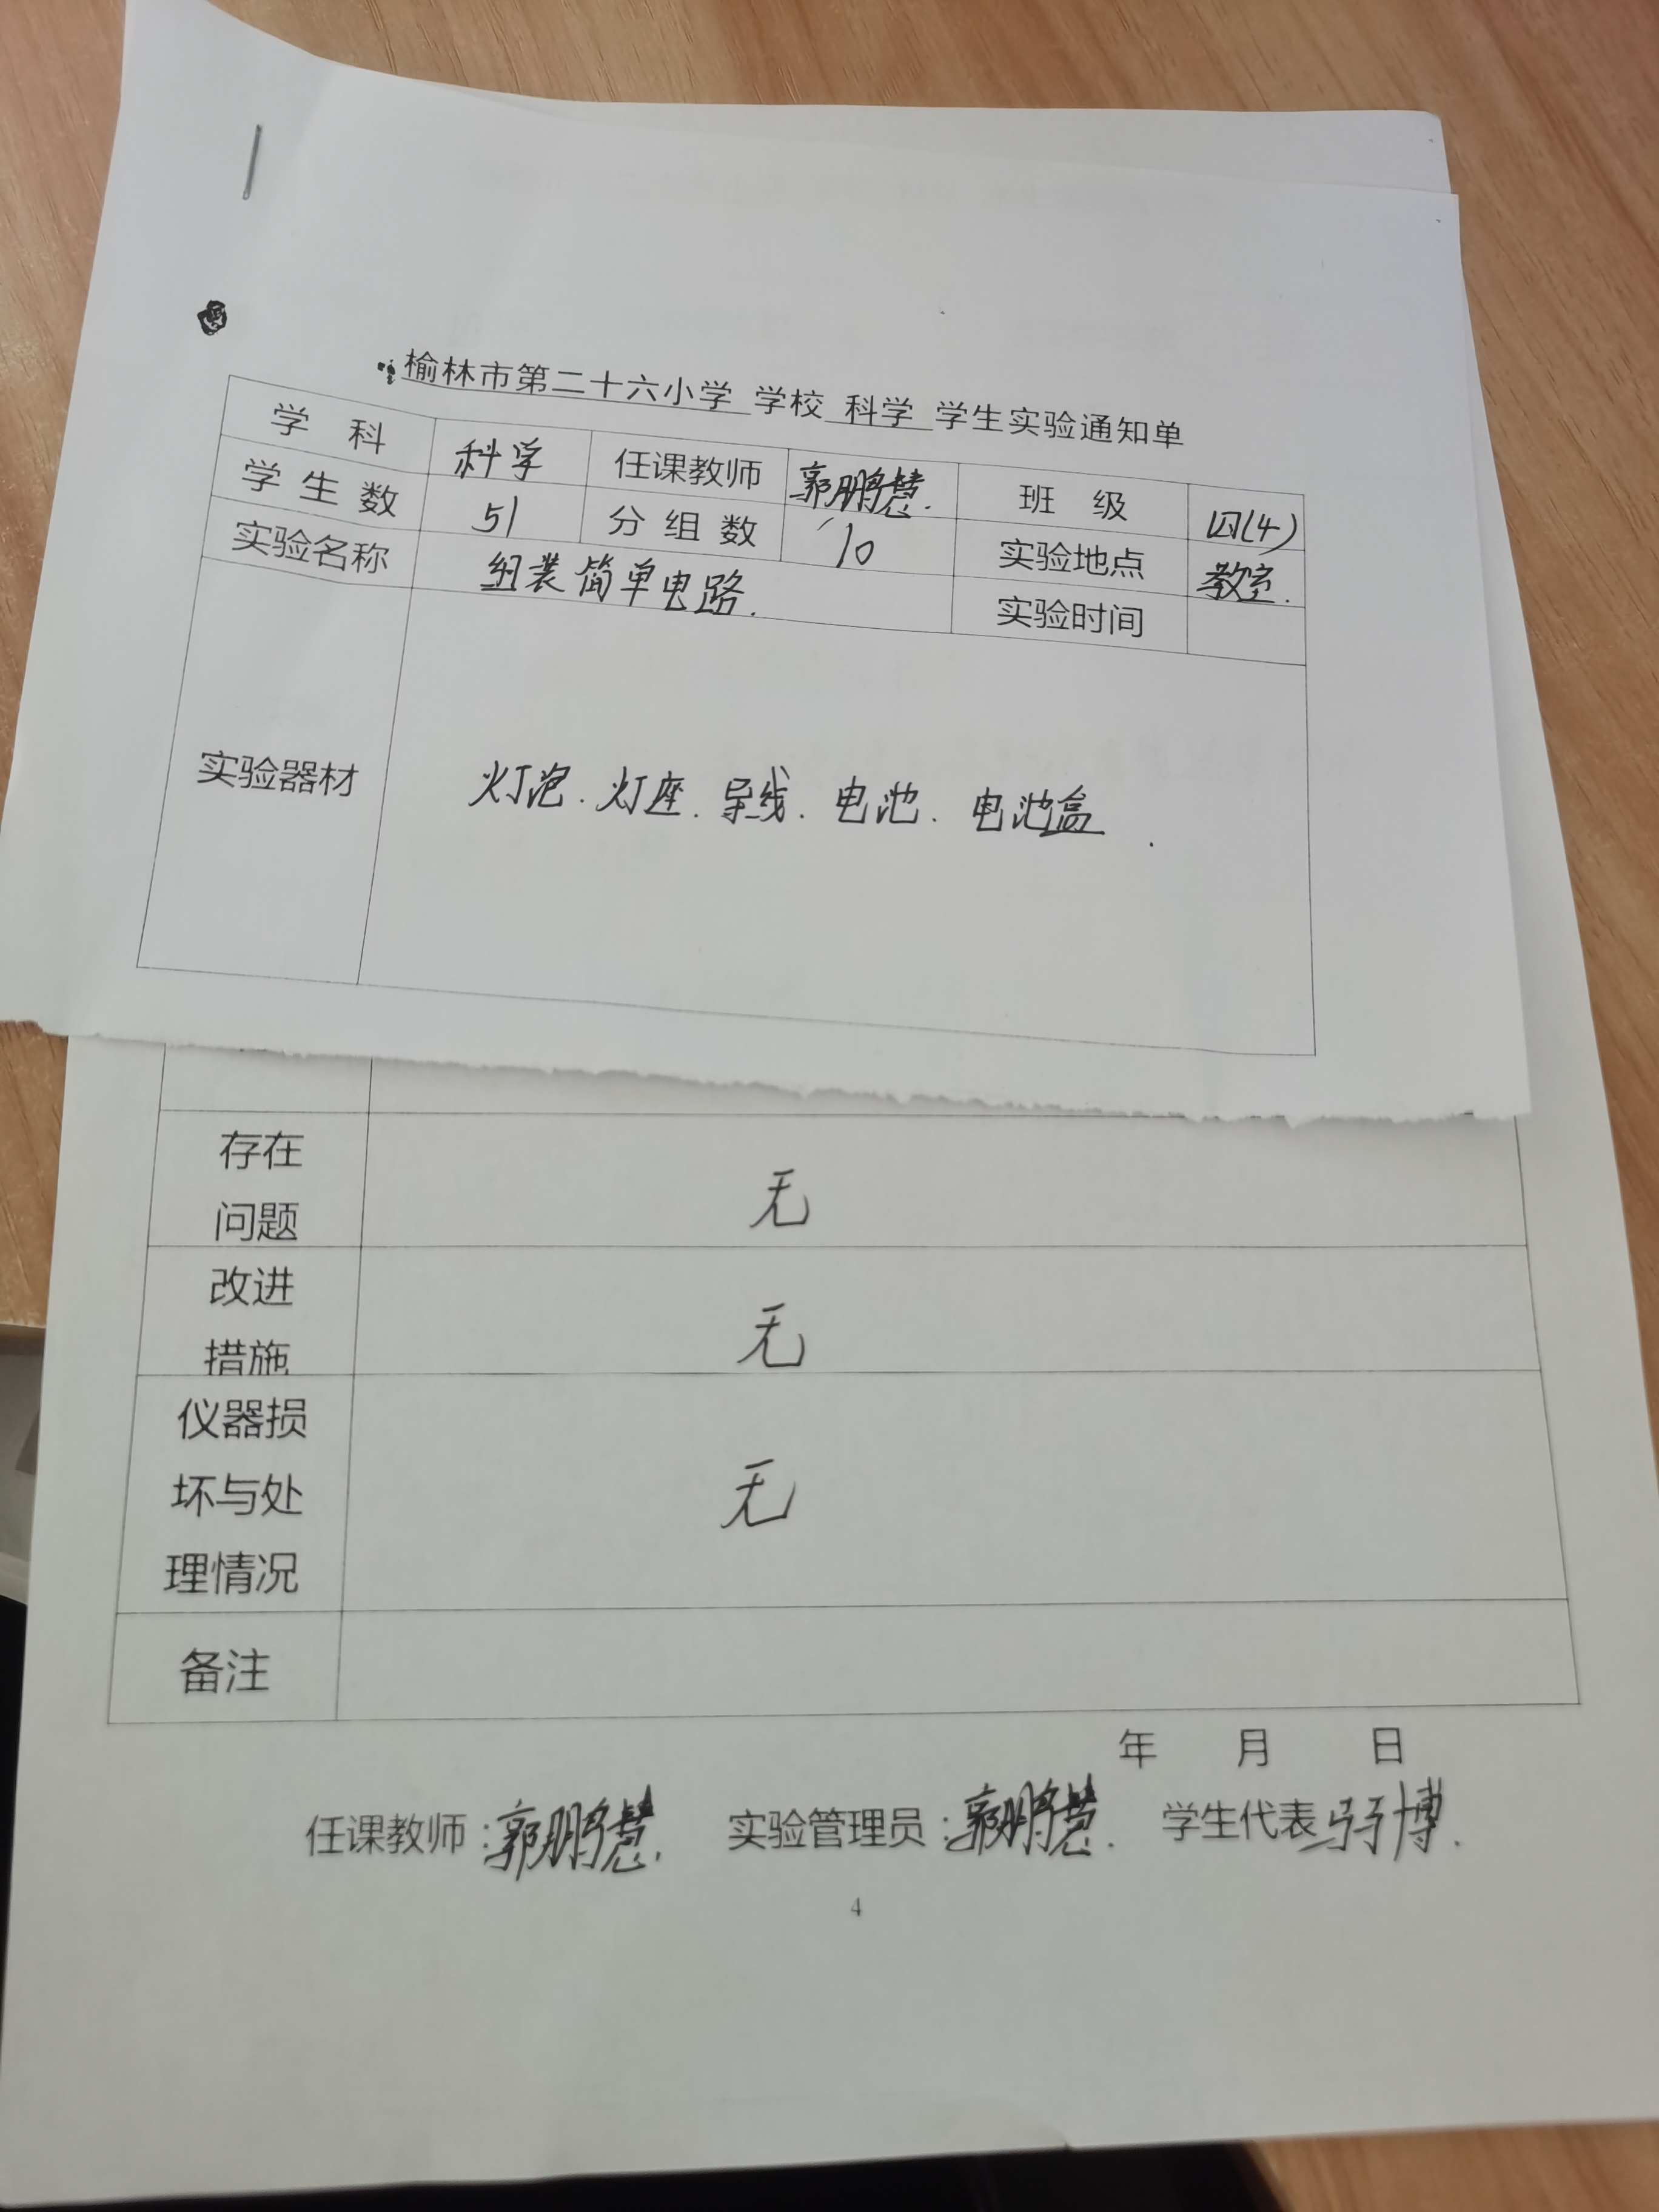 榆林市第二十六小学 学校 科学 学生实验通知单
学 科 科学 任课教师 郭鹏慧. 班 级 四(4)
学 生 数 51 分 组 数 10 实验地点 教室.
实验名称 组装简单电路. 实验时间
实验器材 灯泡. 灯座. 导线. 电池. 电池盒.
存在
问题 无
改进
措施 无
仪器损
坏与处 无
理情况
备注
年 月 日
任课教师:郭鹏慧. 实验管理员:郭鹏慧. 学生代表 博.
4